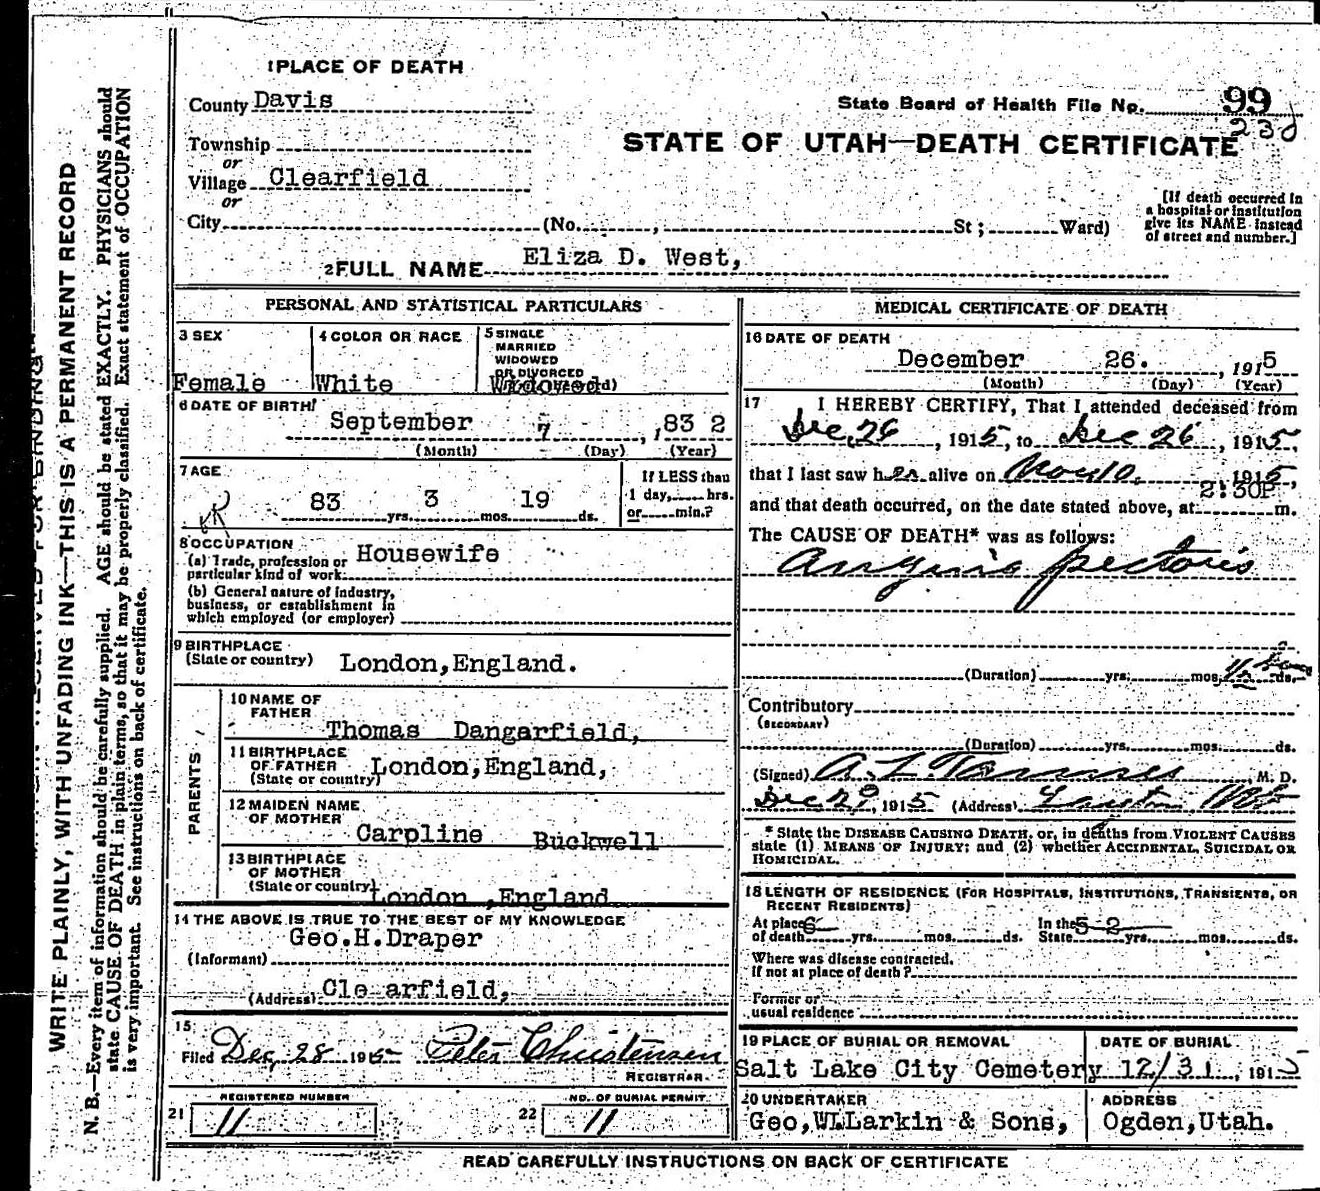 1 PLACE OF DEATH
County Davis
State Board of Health File No. 99
230
Township
or
STATE OF UTAH—DEATH CERTIFICATE
Village Clearfield
or
City (No. , St ; Ward)
[If death occurred in
a hospital or institution
give its NAME instead
of street and number.]
2 FULL NAME Eliza D. West,
PERSONAL AND STATISTICAL PARTICULARS
3 SEX
Female
4 COLOR OR RACE
White
5 SINGLE
MARRIED
WIDOWED
OR DIVORCED
Widowed
6 DATE OF BIRTH
September 7 , 1832
(Month) (Day) (Year)
7 AGE
83 yrs. 3 mos. 19 ds.
If LESS than
1 day, hrs.
or min.?
8 OCCUPATION
(a) Trade, profession or
particular kind of work: Housewife
(b) General nature of industry,
business, or establishment in
which employed (or employer)
9 BIRTHPLACE
(State or country) London, England.
PARENTS
10 NAME OF
FATHER
Thomas Dangerfield,
11 BIRTHPLACE
OF FATHER
(State or country) London, England,
12 MAIDEN NAME
OF MOTHER
Carpline Buckwell
13 BIRTHPLACE
OF MOTHER
(State or country) London ,England
14 THE ABOVE IS TRUE TO THE BEST OF MY KNOWLEDGE
Geo.H.Draper
(Informant)
(Address) Cle arfield,
15
Filed Dec, 28 1915 Peter Christensen
REGISTRAR.
REGISTERED NUMBER
21 11
NO. OF BURIAL PERMIT
22 11
MEDICAL CERTIFICATE OF DEATH
16 DATE OF DEATH
December 26. , 1915
(Month) (Day) (Year)
17 I HEREBY CERTIFY, That I attended deceased from
Dec, 26 , 1915, to Dec 26 , 1915,
that I last saw her alive on Nov 10, 1915,
2:30P
and that death occurred, on the date stated above, at m.
The CAUSE OF DEATH* was as follows:
Angina pectoris
(Duration) yrs. mos. ds.
Contributory
(SECONDARY)
(Duration) yrs. mos. ds.
(Signed) A. L. , M. D.
Dec 29, 1915 (Address)
* State the DISEASE CAUSING DEATH, or, in deaths from VIOLENT CAUSES
state (1) MEANS OF INJURY; and (2) whether ACCIDENTAL, SUICIDAL OR
HOMICIDAL.
18 LENGTH OF RESIDENCE (FOR HOSPITALS, INSTITUTIONS, TRANSIENTS, OR
RECENT RESIDENTS)
At place 6 In the 52
of death yrs. mos. ds. State yrs. mos. ds.
Where was disease contracted,
if not at place of death?
Former or
usual residence
19 PLACE OF BURIAL OR REMOVAL
Salt Lake City Cemetery
DATE OF BURIAL
12/31 , 1915
20 UNDERTAKER
Geo,W.Larkin & Sons,
ADDRESS
Ogden, Utah.
READ CAREFULLY INSTRUCTIONS ON BACK OF CERTIFICATE
WRITE PLAINLY, WITH UNFADING INK—THIS IS A PERMANENT RECORD
N. B.—Every item of information should be carefully supplied. AGE should be stated EXACTLY. PHYSICIANS should
state CAUSE OF DEATH in plain terms, so that it may be properly classified. Exact statement of OCCUPATION
is very important. See instructions on back of certificate.